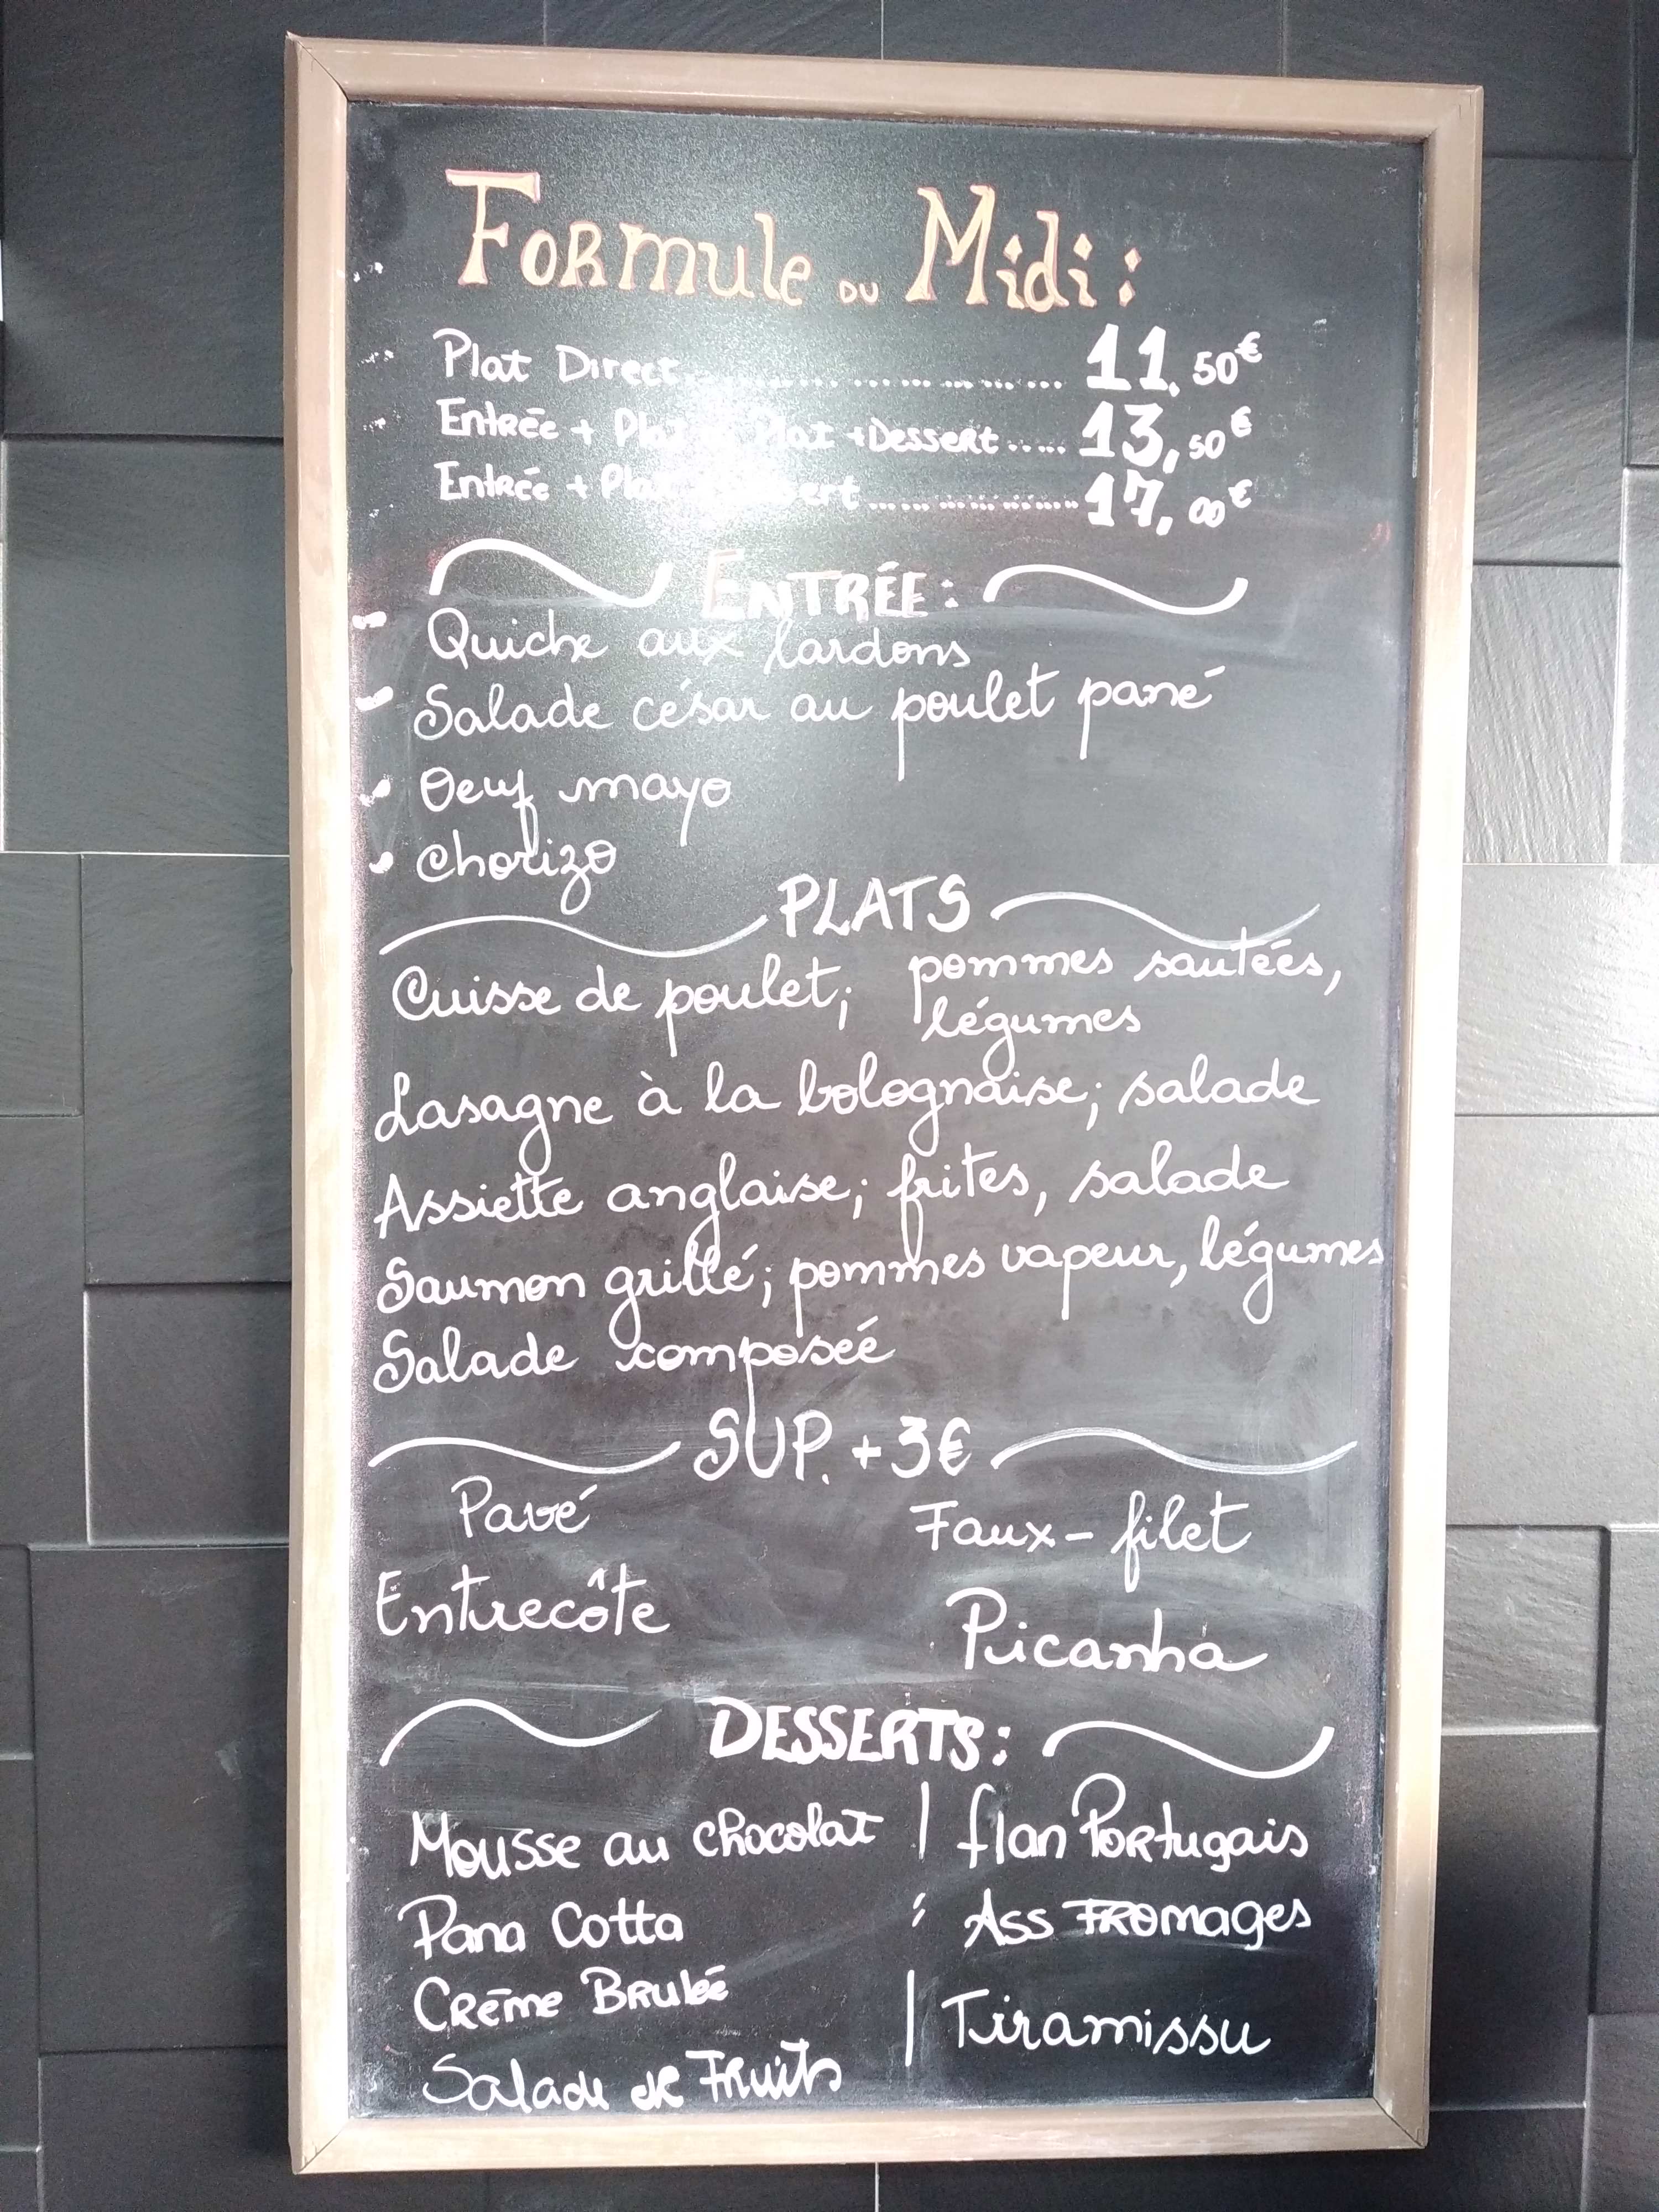 Formule du Midi :
Plat Direct.................... 11,50€
Entrée + Plat Plat +Dessert..... 13,50€
Entrée + Plat ................. 17,00€
ENTRÉE :
Quiche aux lardons
Salade césar au poulet pané
Oeuf mayo
Chorizo
PLATS
Cuisse de poulet; pommes sauteés,
légumes
Lasagne à la bolognaise; salade
Assiette anglaise; frites, salade
Saumon grillé; pommes vapeur, légumes
Salade composeé
SUP. +3€
Pavé Faux-filet
Entrecôte Picanha
DESSERTS :
Mousse au chocolat | flan Portugais
Pana Cotta Ass FROmages
Créme Brulée | Tiramissu
Salade de Fruits